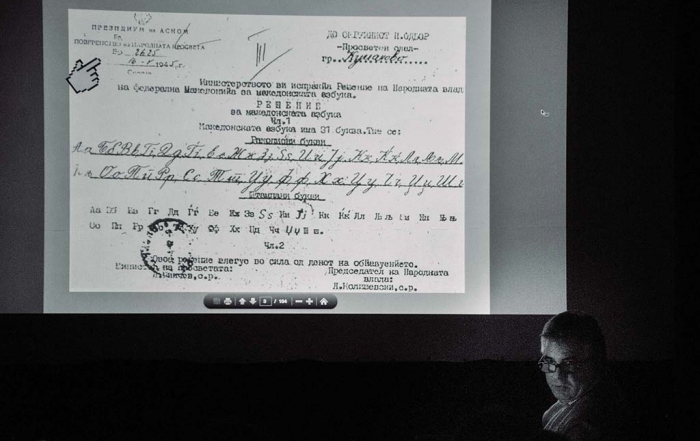 ПРЕЗИДИУМ на АСНОМ
ПОВЕРЕНСТВО НА НАРОДНАТА ПРОСВЕТА
Бр. 2625
1945 г.
Скопје
III
ДО ОКРУЖНИОТ Н.ОДБОР
-Просветен отдел-
гр. Куманово
Министерството ви испраќа Решение на Народната влад
на федерална Македонија за македонската азбука.
РЕШЕНИЕ
за македонската азбука
Чл.1
Македонската азбука има 31 буква. Тие се:
Ракописни букви
Аа Бб Вв Гг Дд Ѓѓ Ее Жж Зз Ѕѕ Ии Јј Кк Ќќ Лл
Оо Пп Рр Сс Тт Уу Фф Хх Цц Чч Џџ Шш
Печатани букви
Аа Бб Вв Гг Дд Ѓѓ Ее Жж Зз Ѕѕ Ии Јј Кк Ќќ Лл Љљ Мм Нн Њњ
Оо Пп Рр Сс Тт Уу Фф Хх Цц Чч Џџ Шш.
Чл.2
Овоа решение влегуе во сила од денот на обѓауението.
Министер на просветата:
Председател на Народната
влада:
Л.Колишевски,с.р.
8 / 104